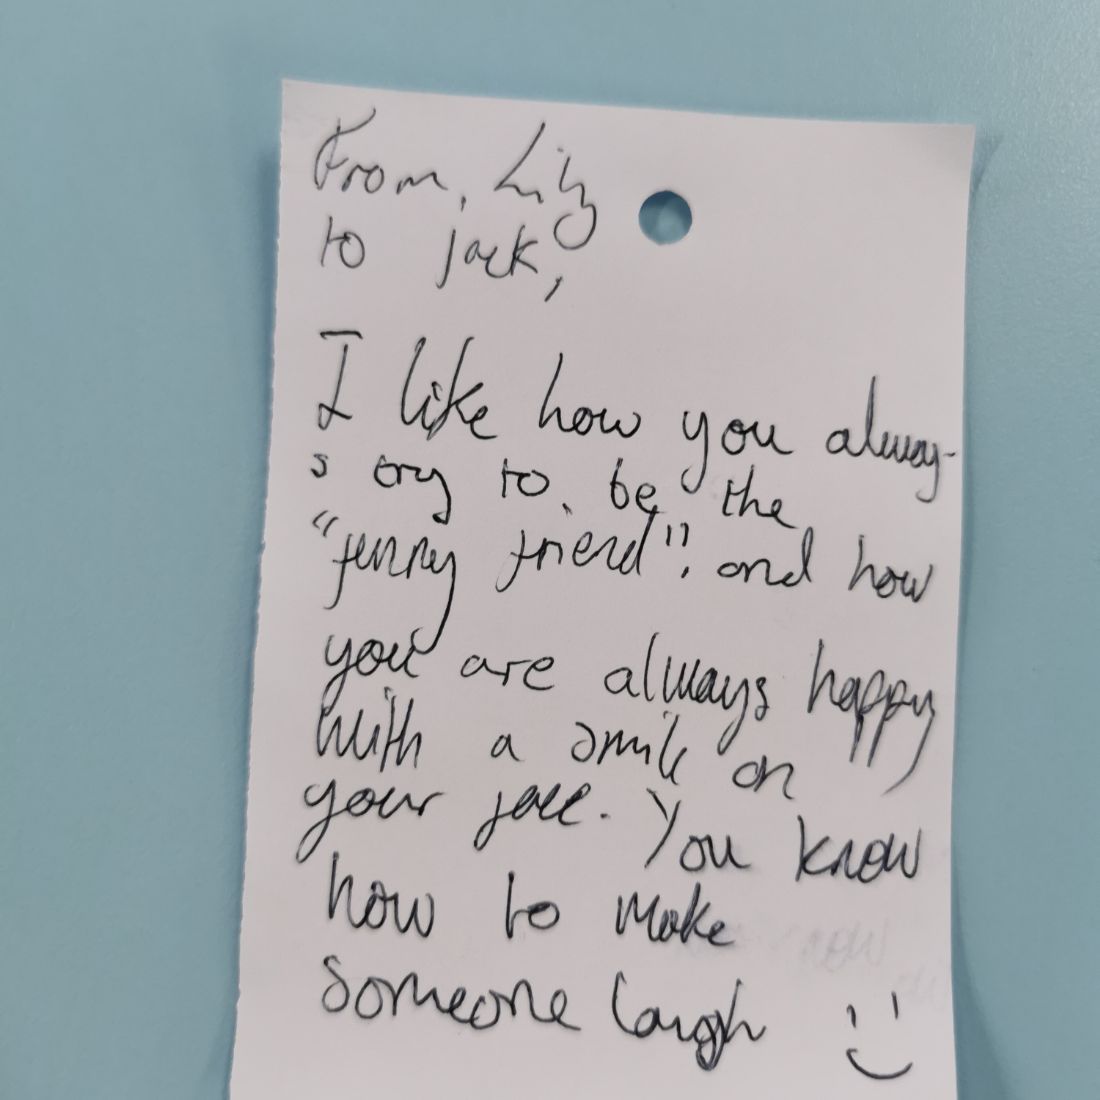 From, Lily
to jack,
I like how you alway-
s try to be the
"funny friend", and how
you are always happy
with a smile on
your face. You know
how to make
someone laugh